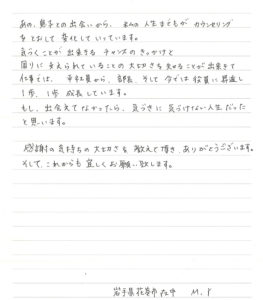 あの、息子との出会いから、私の人生までもが カンセリング
をとおして 変化して いっています。
気づくことが 出来きる チャンスの きっかけと
回りに 支えられていることの 大切さを 知れることが出来まして
仕事では、平社員から、部長、そして 今では 役員に 昇進し
1歩、1歩 成長しています。
もし、出会えて なかったら、気づきに 気づけない人生だった
と思います。
感謝の気持ちの 大切さを 教えて頂き、ありがとうございます。
そして、これからも 宜しくお願い致します。
岩手県花巻市在中 M.Y